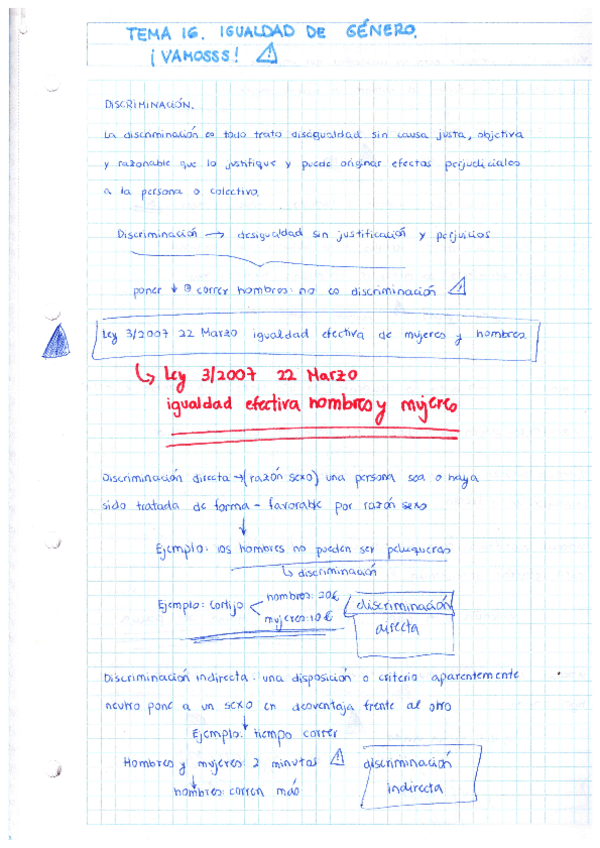 TEMA 16. IGUALDAD DE GÉNERO.
¡VAMOSSS! ⚠
DISCRIMINACIÓN.
La discriminación es todo trato desigualdad sin causa justa, objetiva
y razonable que lo justifique y puede originar efectos perjudiciales
a la persona o colectivo.
Discriminación → desigualdad sin justificación y perjuicios
poner ↓ correr hombres: no es discriminación ⚠
Ley 3/2007 22 Marzo igualdad efectiva de mujeres y hombres
↳ Ley 3/2007 22 Marzo
igualdad efectiva hombres y mujeres
Discriminación directa → (razón sexo) una persona sea o haya
sido tratada de forma - favorable por razón sexo
↓
Ejemplo: los hombres no pueden ser peluqueros
↳ discriminación
Ejemplo: Cortijo < hombres: 20€
mujeres: 10€
discriminación
directa
Discriminación indirecta: una disposición o criterio aparentemente
neutro pone a un sexo en desventaja frente al otro
↓
Ejemplo: tiempo correr
Hombres y mujeres: 2 minutos ⚠
↳ hombres corren más
discriminación
indirecta